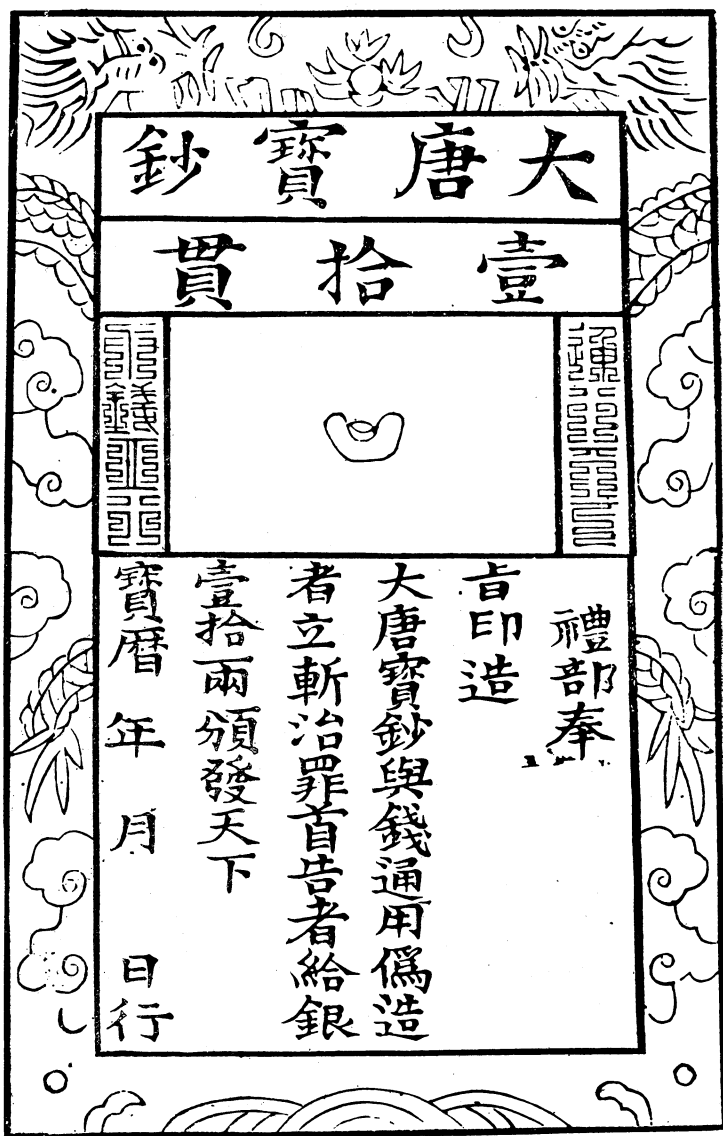 大唐寶鈔
壹拾貫
禮部奉
旨印造
大唐寶鈔與錢通用僞造
者立斬治罪首告者給銀
壹拾兩頒發天下
寶曆 年 月 日行